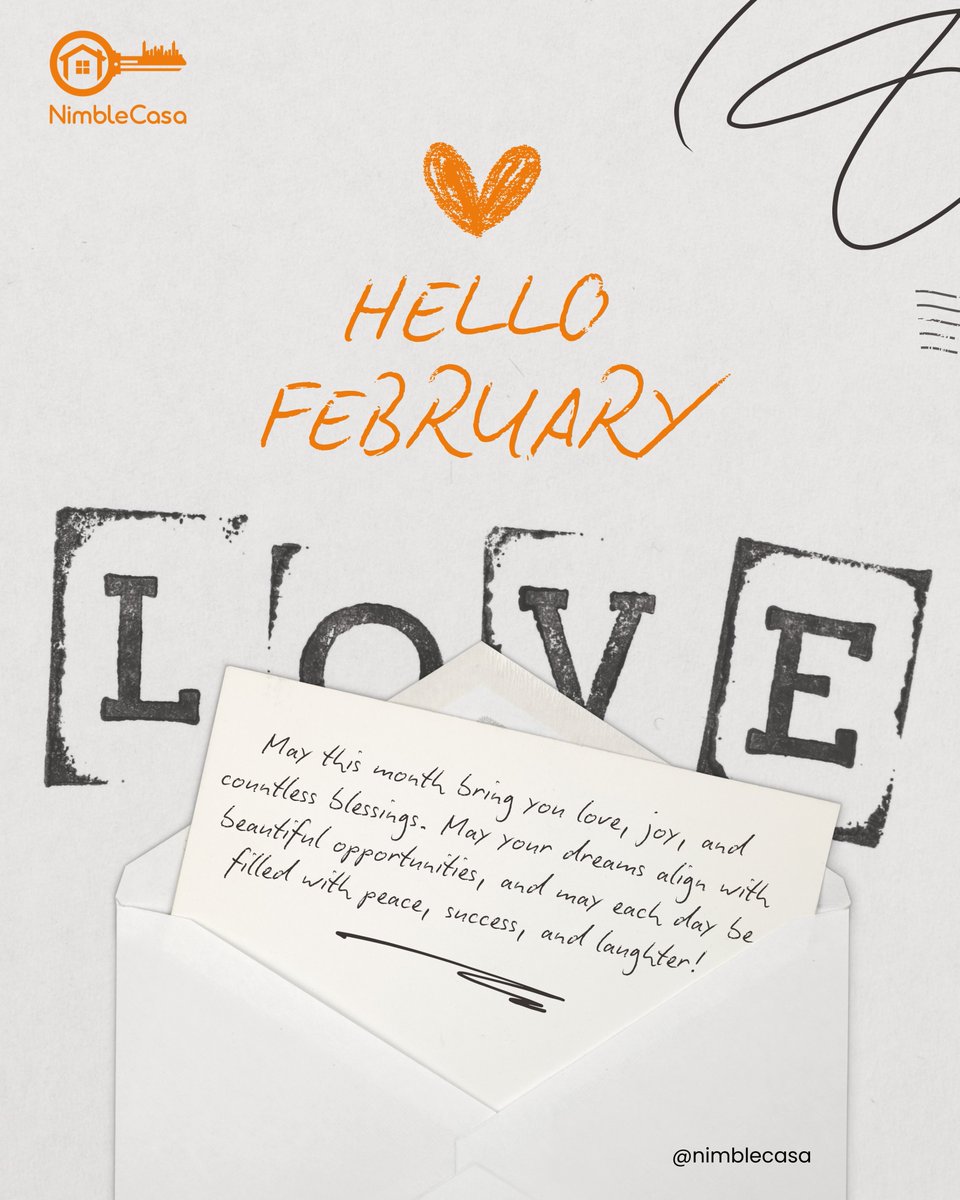 NimbleCasa
HELLO
FEBRUARY
LOVE
May this month bring you love, joy, and
countless blessings. May your dreams align with
beautiful opportunities, and may each day be
filled with peace, success, and laughter!
@nimblecasa